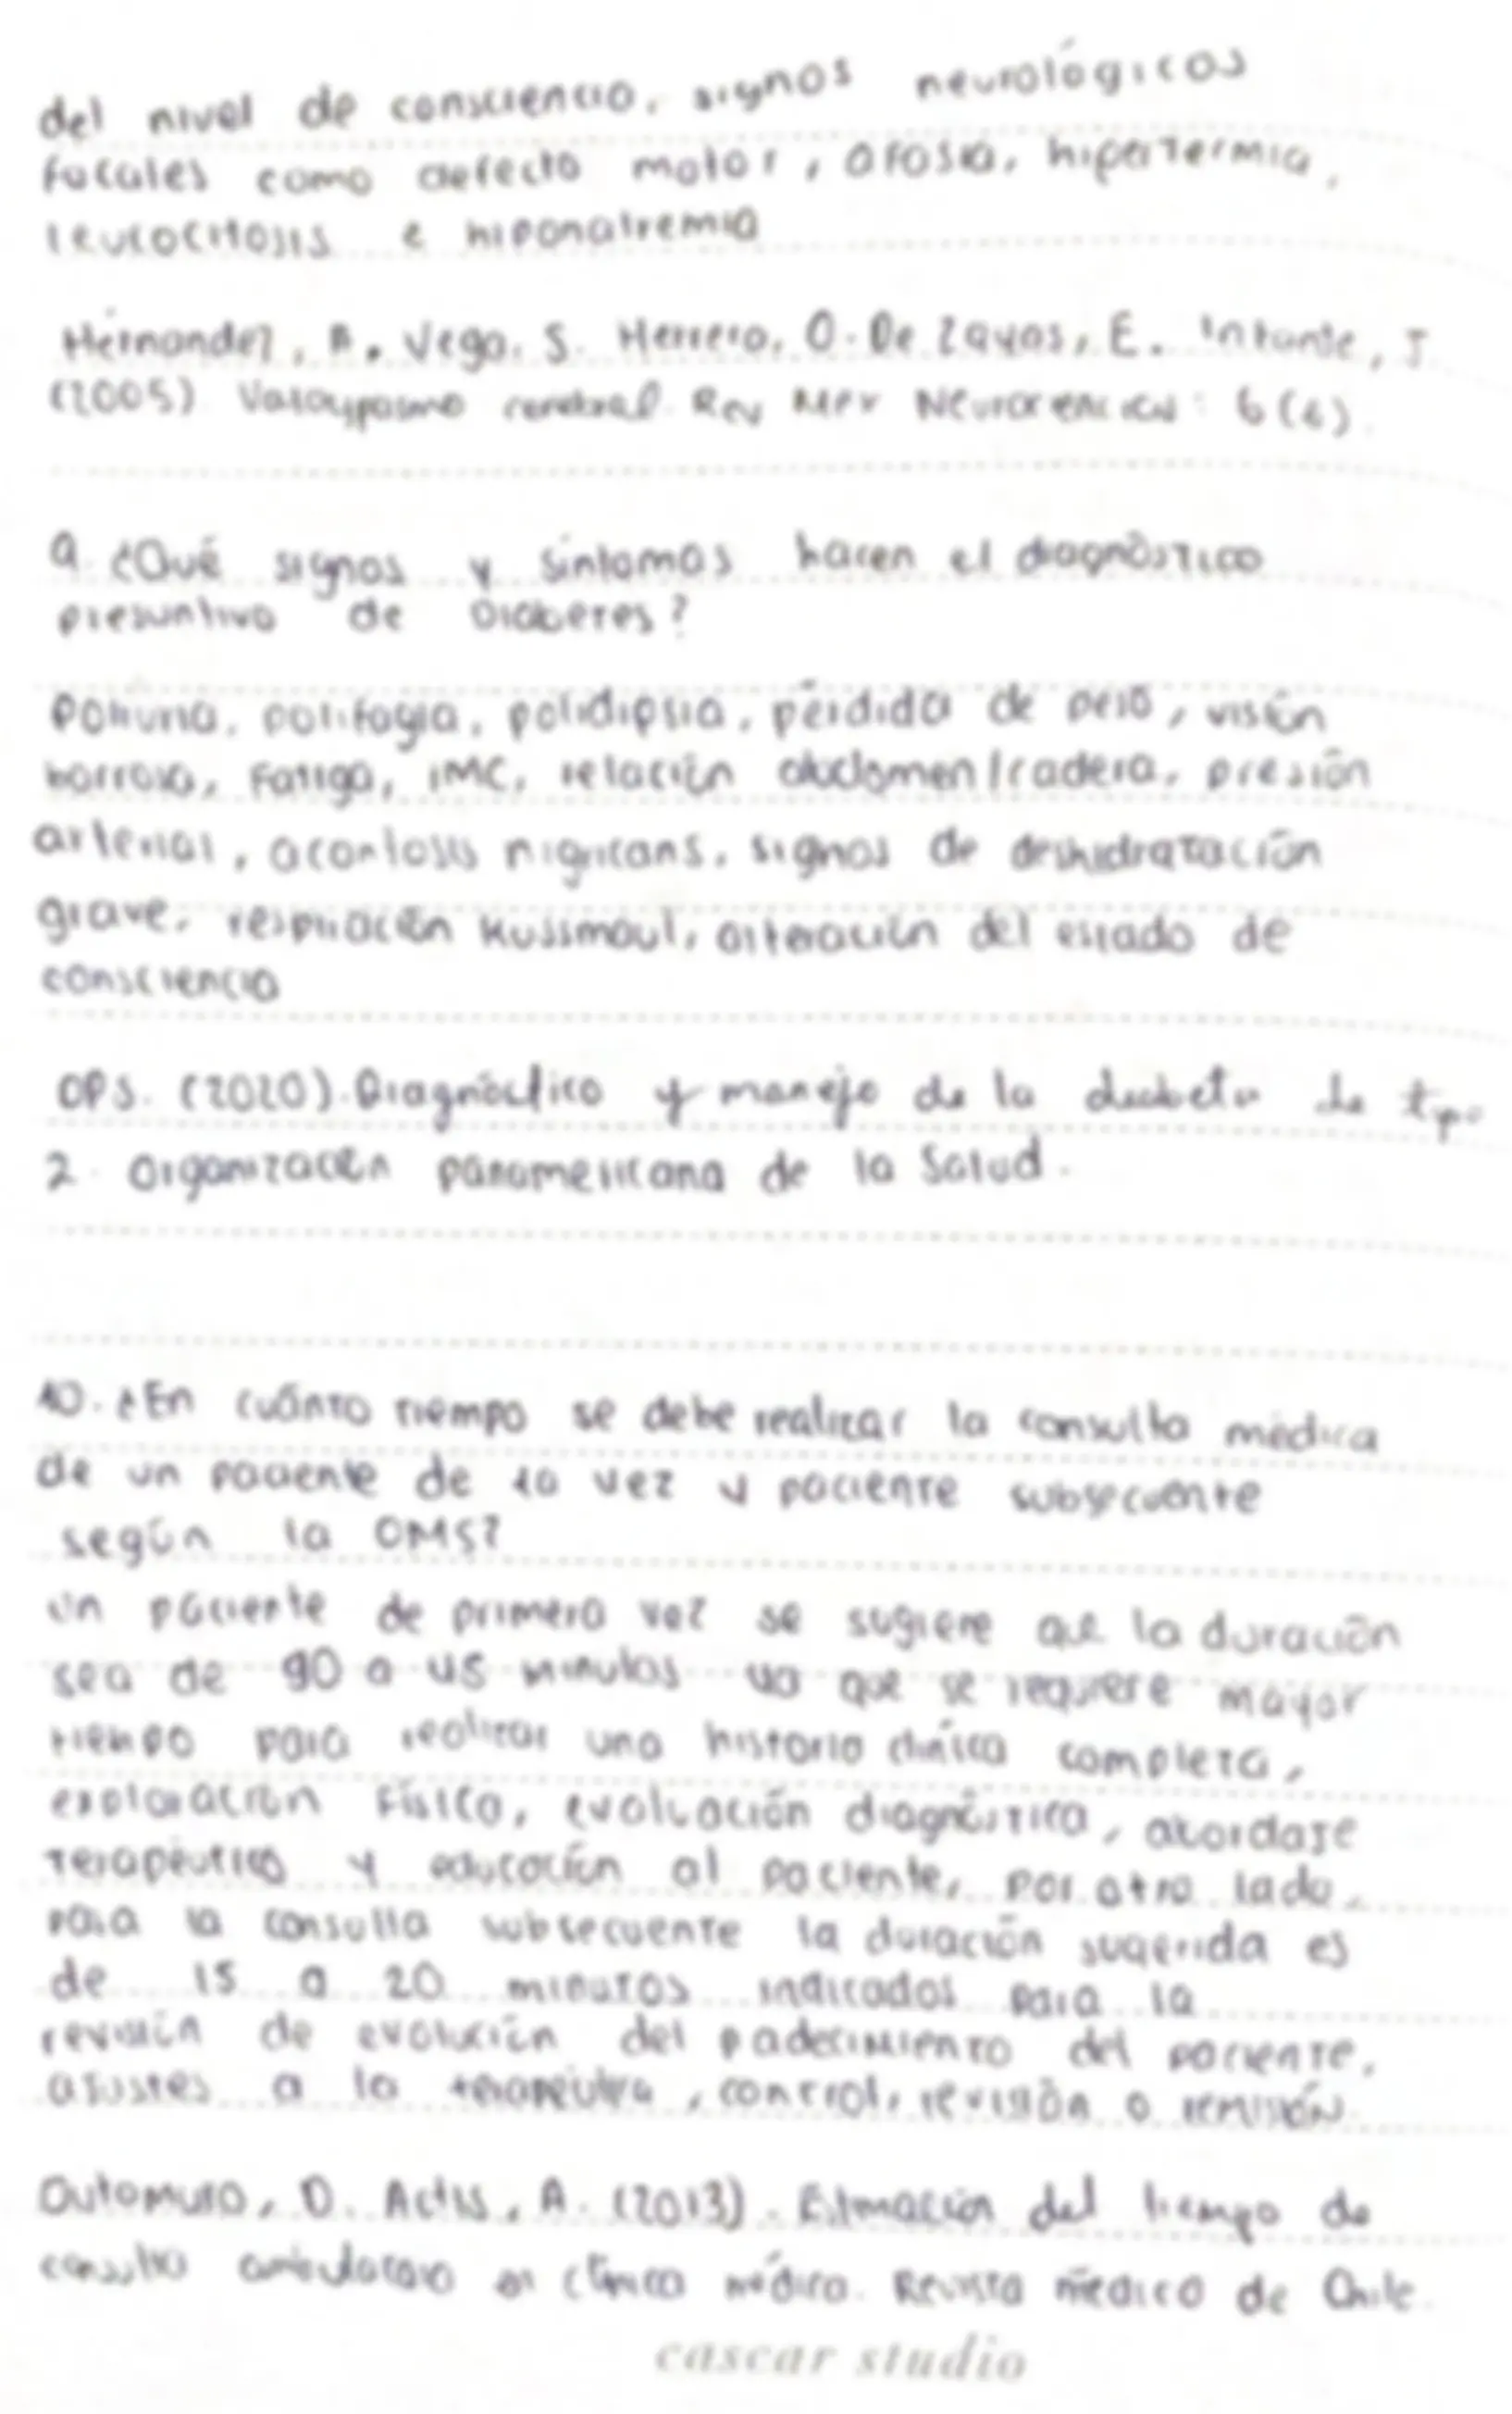 del nivel de consciencia, signos neurológicos
focales como defecto motor, afasia, hipertermia,
leucocitosis e hiponatremia
Hernandez, A. Vega, S. Herrero, O. De Zayas, E. Infante, J
(2005) Vasoespasmo cerebral Rev Mex Neurociencias: 6(4).
9. ¿Qué signos y síntomas hacen el diagnóstico
presuntivo de Diabetes?
Poliuria, polifagia, polidipsia, pérdida de peso, visión
borrosa, Fatiga, IMC, relación abdomen/cadera, presión
arterial, acantosis nigricans, signos de deshidratación
grave, respiración Kussmaul, alteración del estado de
consciencia
OPS. (2020). Diagnóstico y manejo de la diabetes de tipo
2. Organización panamericana de la Salud.
10. ¿En cuánto tiempo se debe realizar la consulta médica
de un paciente de 1a vez y paciente subsecuente
según la OMS?
Un paciente de primera vez se sugiere que la duración
sea de 90 a 45 minutos ya que se requiere mayor
tiempo para realizar una historia clínica completa,
exploración Física, evaluación diagnóstica, abordaje
terapéutico y educación al paciente, por otro lado,
para la consulta subsecuente la duración sugerida es
de 15 a 20 minutos indicados para la
revisión de evolución del padecimiento del paciente,
ajustes a la terapéutica, control, revisión o remisión.
Outomuro, D. Actis, A. (2013). Estimación del tiempo de
consulta ambulatoria en clínica médica. Revista médica de Chile.
cascar studio